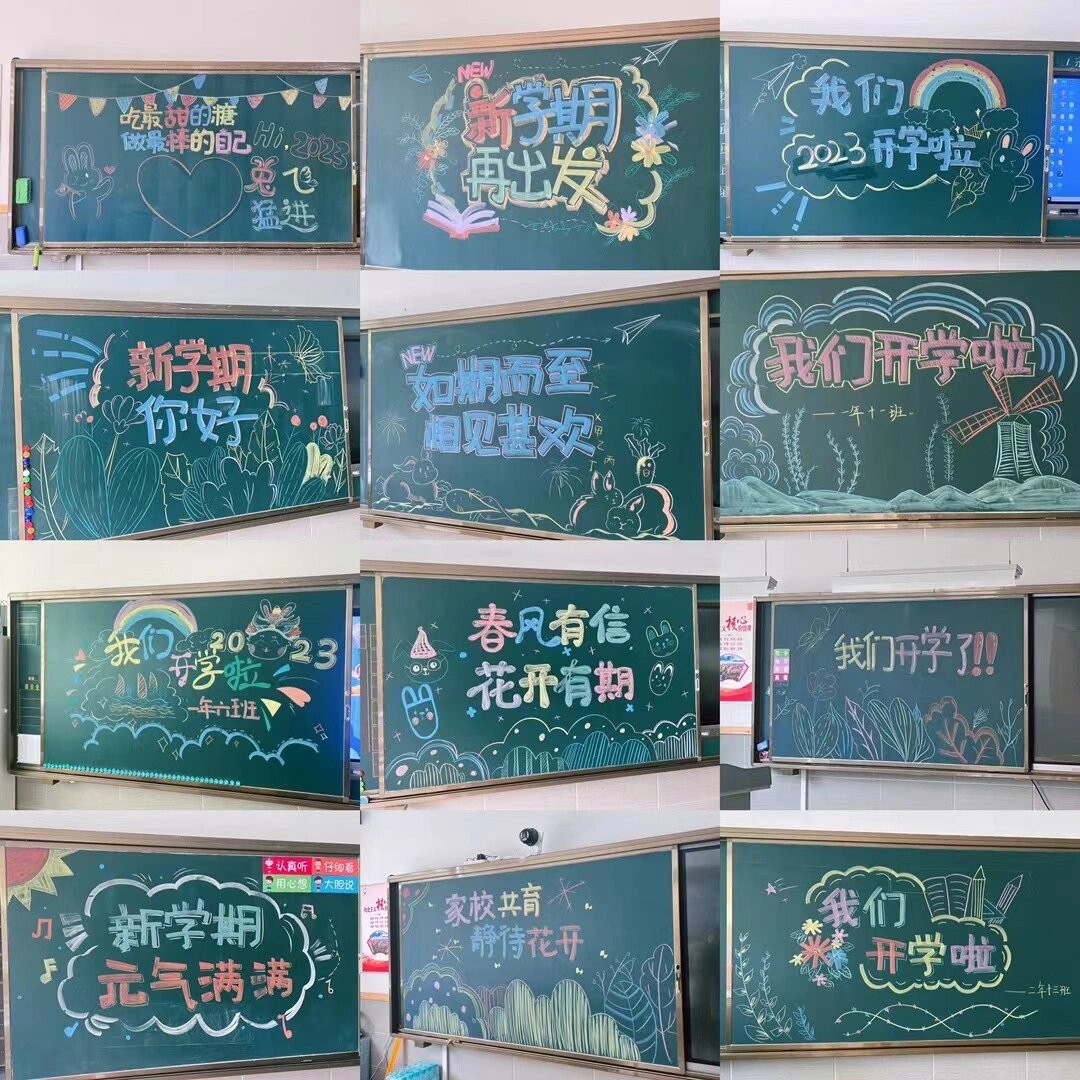 吃最甜的糖
做最棒的自己
Hi,2023
兔飞
猛进
NEW
新学期
再出发
我们
2023 开学啦
新学期
你好
NEW
如期而至
相见甚欢
我们开学啦
一年十一班
我们
2023
开学啦
一年六班
春风有信
花开有期
我们开学了!!
新学期
元气满满
认真听
仔细看
用心想
大胆说
家校共育
静待花开
我们
开学啦
二年十三班